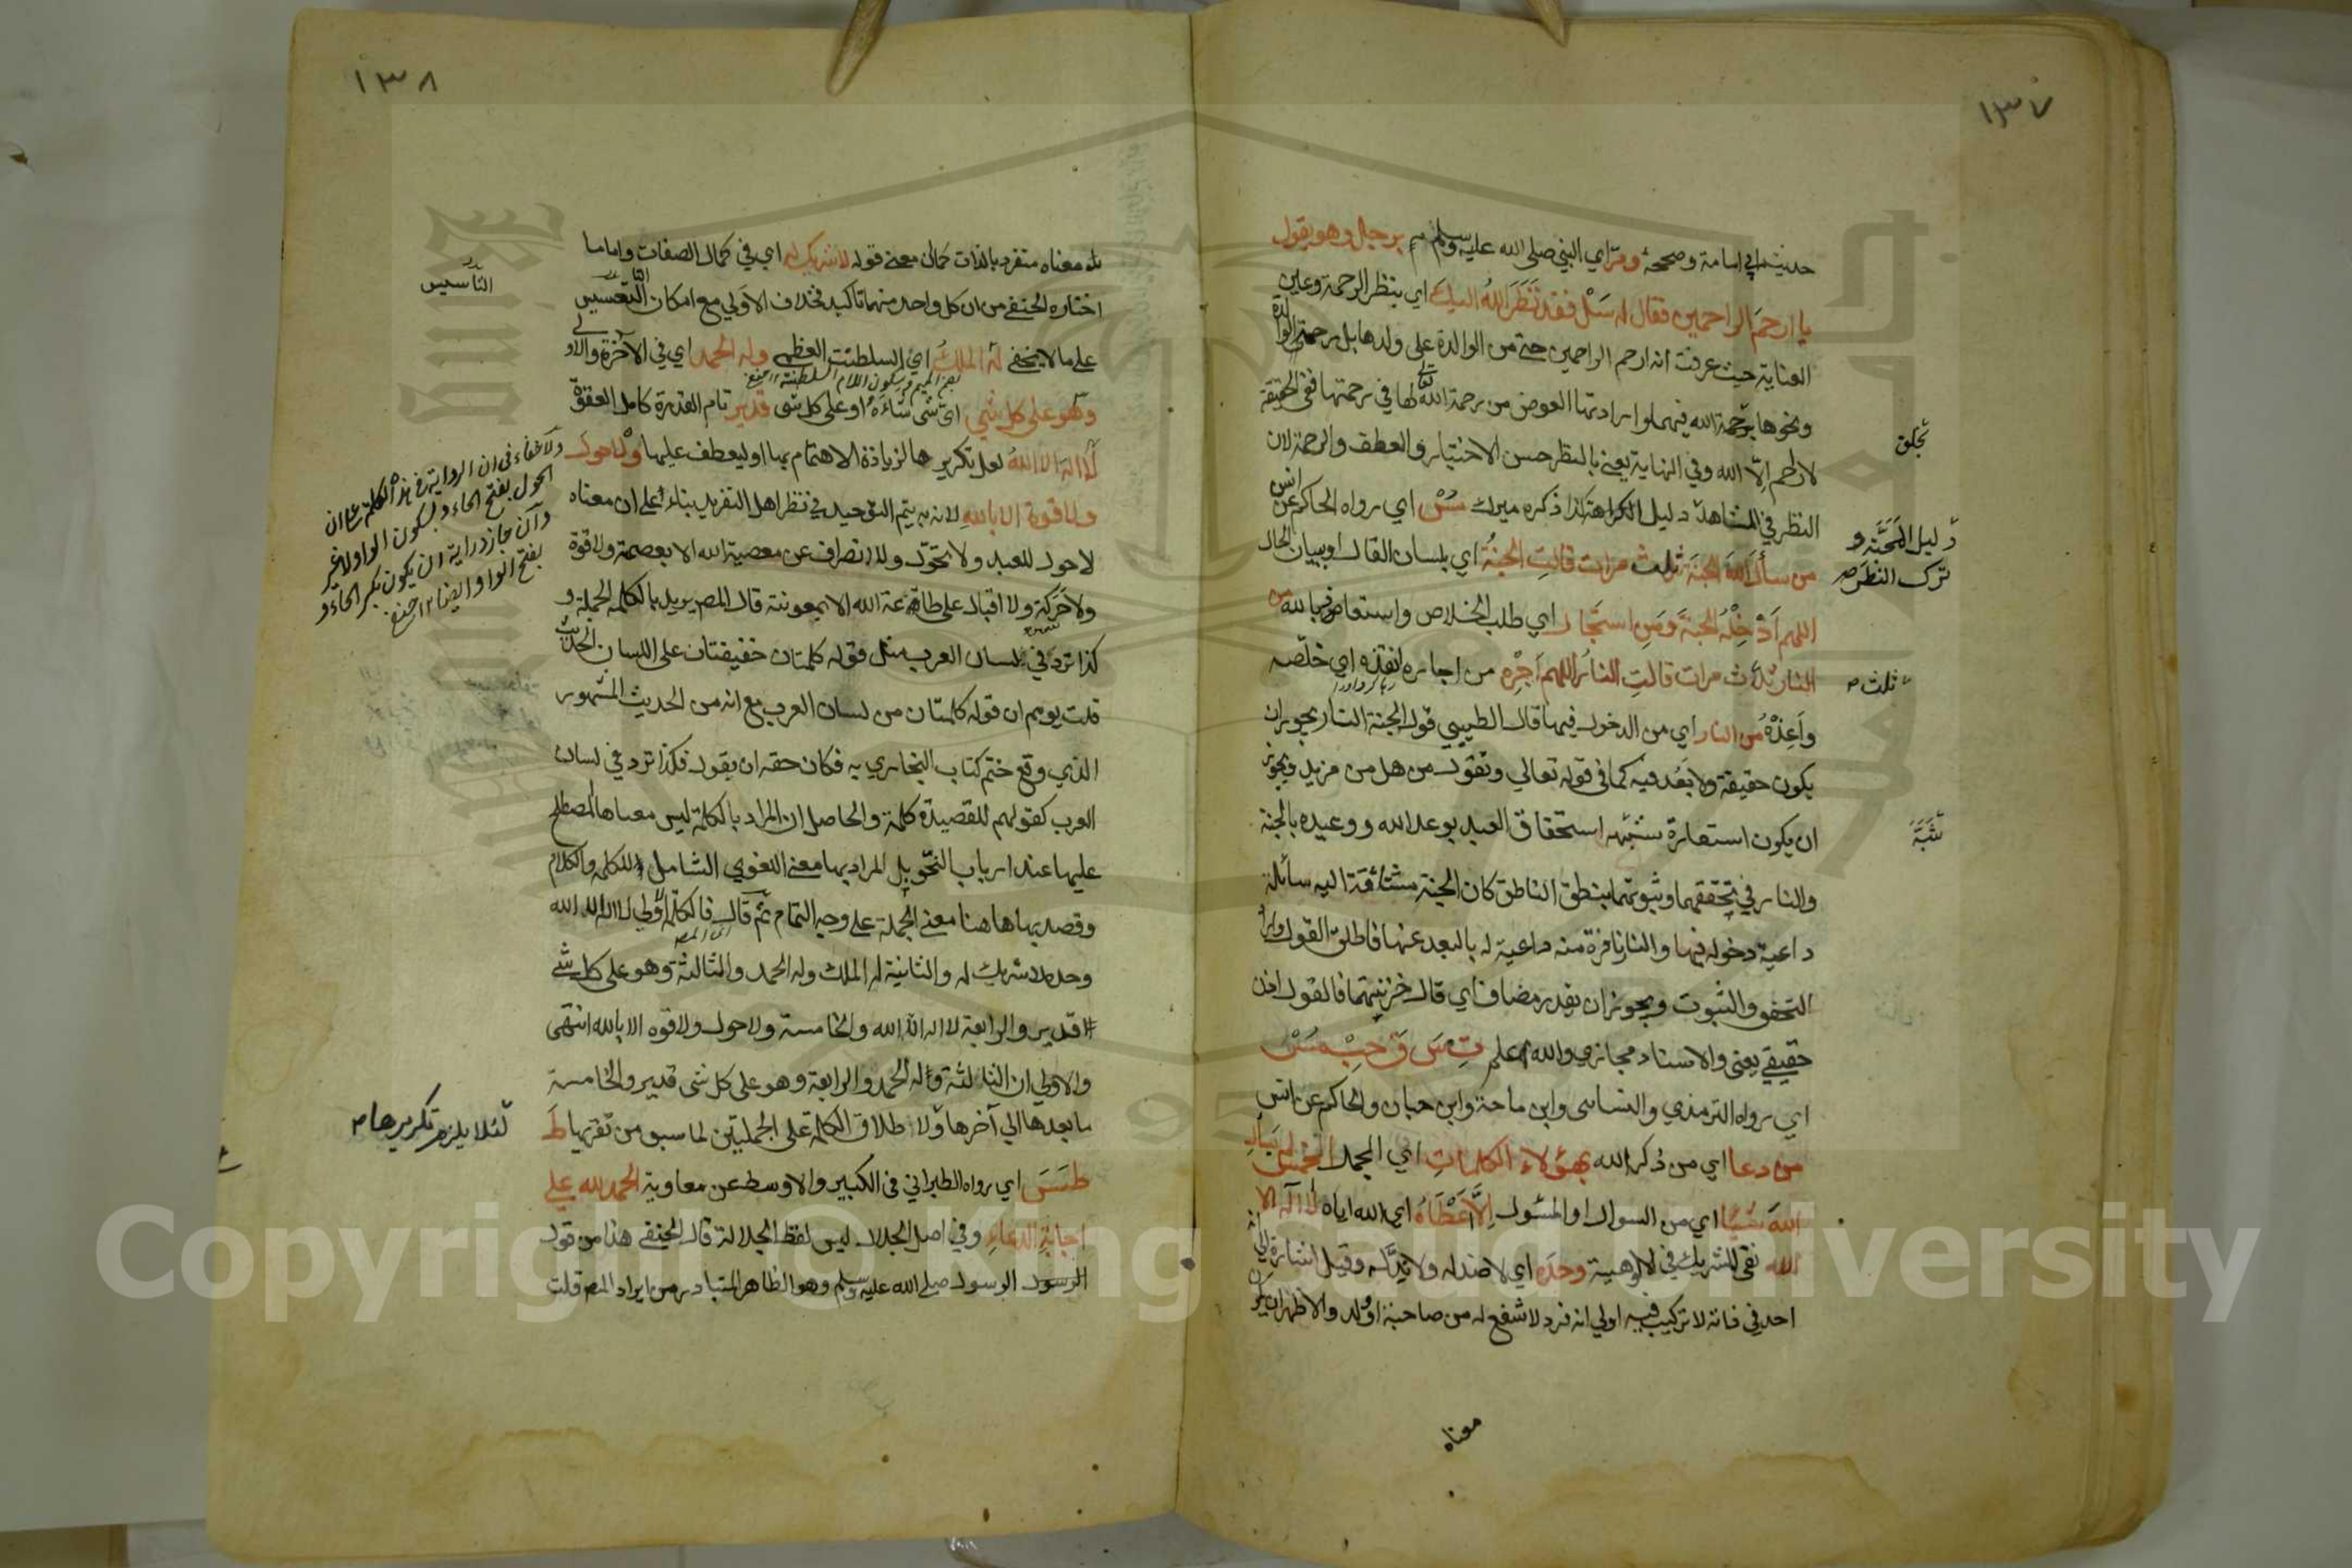 ١٣٧
حديث ابي امامة وصححه ومرّ اي النبي صلى الله عليه وسلم برجل وهو يقول
يا ارحم الراحمين فقال له سل فقد نظر الله اليك اي بنظر الرحمة وعين
العناية حيث عرفت انه ارحم الراحمين حتى من الوالدة على ولدها بل رحمة الوالدة
ونحوها برحمة الله فيهما وارادتها العوض من رحمة الله تعالى لها في رحمتها ففي الحقيقة
لا راحم الّا الله وفي النهاية يعني بالنظر حسن الاختيار والعطف والرحمة لان
النظر في المشاهد دليل الكراهة كذا ذكره ميرك مس اي رواه الحاكم عن انس
من سأل الله الجنة ثلث مرات قالت الجنة اي بلسان القال او ببيان الحال
اللهم ادخله الجنة ومن استجار اي طلب الخلاص واستعاذ بالله من
النار ثلاث مرات قالت النار اللهم اجره من اجاره انقذه اي خلّصه
واعذه من النار اي من الدخول فيها قال الطيبي قول الجنة النار يجوز ان
يكون حقيقة ولا بعد فيه كما في قوله تعالى وتقول من هل من مزيد ويجوز
ان يكون استعارة شبّه استحقاق العبد بوعد الله ووعيده بالجنة
والنار في تحققهما وثبوتهما بنطق الناطق كان الجنة مشتاقة اليه سائلة
داعية دخوله فيها والنار نافرة منه داعية له بالبعد عنها فاطلق القول واراد
التحقق والثبوت ويجوز ان يقدر مضاف اي قال خزنتهما فالقول اذن
حقيقي يعني والاسناد مجازي والله اعلم ت س ق حب مس
اي رواه الترمذي والنسائي وابن ماجة وابن حبان والحاكم عن انس
من دعا اي من ذكر الله بهؤلاء الكلمات اي الجمل الخمس لم يسأل
الله شيئا اي من السوال او المسئول الّا اعطاه اي الله اياه لا اله الا
الله نفي للشريك في الالوهية وحده اي لا ضد له ولا ندّ له وقيل اشارة الى انه
احد في ذاته لا تركيب فيه اولى انه فرد لا شفع له من صاحبة او ولد والاظهر ان يكون
معناه
تجلق
دليل المحبة و
ترك النظر صح
ثلث صح
شبّه
١٣٨
معناه متفرد بالذات كما ان معنى قوله لا شريك له اي في كمال الصفات واما ما
اختاره الحنفي من ان كل واحد منهما تاكيد فخلاف الاولى مع امكان التاسيس
على ما لا يخفى له الملك اي السلطنة العظمى وله الحمد اي في الآخرة والاولى
بضم الميم وسكون اللام السلطنة ١٢ حنفي
وهو على كل شيء اي شيء شاءه او على كل شيء قدير تام القدرة كامل القوة
لا اله الا الله لعل تكريرها لزيادة الاهتمام بها او ليعطف عليها ولا حول
ولا قوة الا بالله لانه به يتم التوحيد في نظر اهل التفريد بناء على ان معناه
لا حول للعبد ولا تحوّل ولا انصراف عن معصية الله الا بعصمته ولا قوة
ولا حركة ولا اقبال على طاعة الله الا بمعونته قال المص يريد بالكلمة الجملة و
كذا ترد في لسان العرب مثل قوله كلمتان خفيفتان على اللسان الحديث
قلت يوهم ان قوله كلمتان من لسان العرب مع انه من الحديث المشهور
الذي وقع ختم كتاب البخاري به فكان حقه ان يقول فكذا ترد في لسان
العرب كقولهم للقصيدة كلمة والحاصل ان المراد بالكلمة ليس معناها المصطلح
عليها عند ارباب النحو بل المراد بها معنى اللغوي الشامل للكلمة والكلام
وقصد بها هاهنا معنى الجملة على وجه التمام ثم قال فالكلمة الاولى لا اله الا الله
اي المص
وحده لا شريك له والثانية له الملك وله الحمد والثالثة وهو على كل شيء
قدير والرابعة لا اله الا الله والخامسة ولا حول ولا قوة الا بالله انتهى
والاولى ان الثالثة وله الحمد والرابعة وهو على كل شيء قدير والخامسة
ما بعدها الى آخرها ولا طلاق الكلمة على الجملتين لما سبق من تقريبها ط
طس اي رواه الطبراني في الكبير والاوسط عن معاوية الحمد لله على
اجابة الدعاء وفي اصل الجلال ليس لفظ الجلالة قال الحنفي هذا من قول
الرسول الرسول صلى الله عليه وسلم وهو الظاهر المتبادر من ايراد المص قلت
التاسيس
ولا خفاء في ان الرواية في هذه الكلمة على ان
الحول بفتح الحاء وبسكون الواو لا غير
وان جاز دراية ان يكون بكسر الحاء و
بفتح الواو ايضا ١٢ حنفي
لئلا يلزم تكريرها صح
Copyright © King Saud University